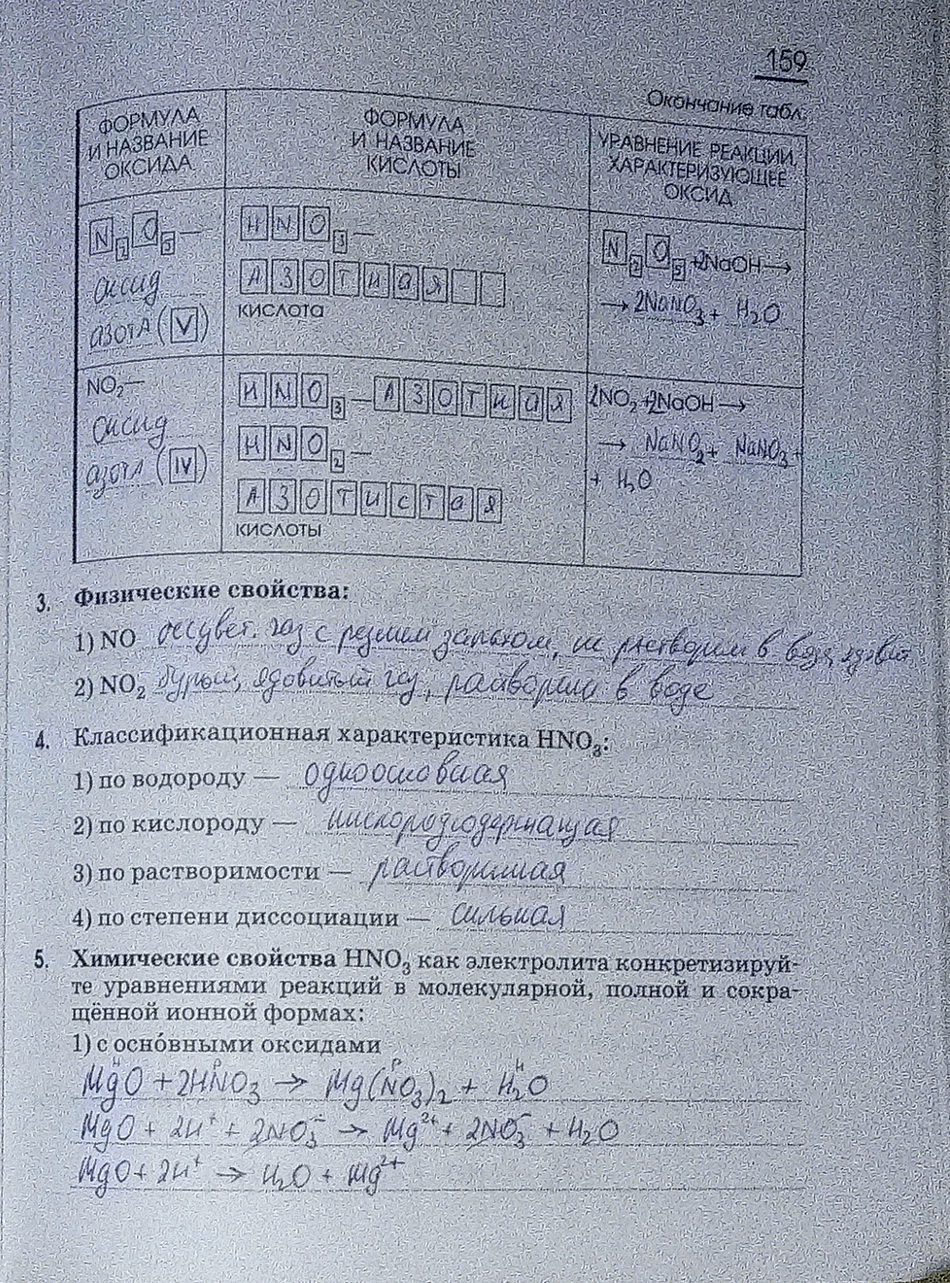 159
Окончание табл.
ФОРМУЛА
И НАЗВАНИЕ
ОКСИДА
ФОРМУЛА
И НАЗВАНИЕ
КИСЛОТЫ
УРАВНЕНИЕ РЕАКЦИИ,
ХАРАКТЕРИЗУЮЩЕЕ
ОКСИД
N₂O₅ —
оксид
азота (V)
HNO₃ —
АЗОТНАЯ
КИСЛОТА
N₂O₅ + 2NaOH →
→ 2NaNO₃ + H₂O
NO₂ —
оксид
азота (IV)
HNO₃ — АЗОТНАЯ
HNO₂ —
АЗОТИСТАЯ
КИСЛОТЫ
2NO₂ + 2NaOH →
→ NaNO₂ + NaNO₃ +
+ H₂O
3. Физические свойства:
1) NO бесцвет. газ с резким запахом, не растворим в воде, ядовит
2) NO₂ бурый, ядовитый газ, растворим в воде
4. Классификационная характеристика HNO₃:
1) по водороду — одноосновная
2) по кислороду — кислородсодержащая
3) по растворимости — растворимая
4) по степени диссоциации — сильная
5. Химические свойства HNO₃ как электролита конкретизируй-
те уравнениями реакций в молекулярной, полной и сокра-
щённой ионной формах:
1) с осно́вными оксидами
н р р н
MgO + 2HNO₃ → Mg(NO₃)₂ + H₂O
MgO + 2H⁺ + 2NO₃⁻ → Mg²⁺ + 2NO₃⁻ + H₂O
MgO + 2H⁺ → H₂O + Mg²⁺